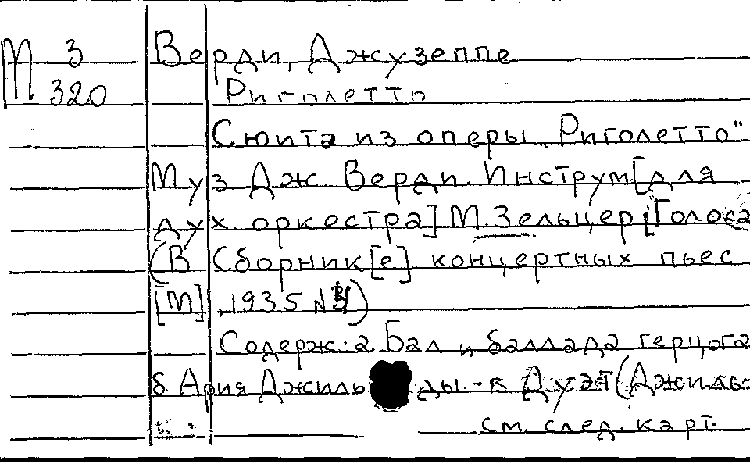 М 3 Верди, Джузеппе
320 Риголетто
Сюита из оперы „Риголетто"
Муз Дж Верди. Инструм[для
дух. оркестра] М. Зельцер [Голоса
(В Сборник[е] концертных пьес
[М], 1935 №)
Содерж: а Бал и баллада герцога
б Ария Джильды. - в Дуэт (Джиль-
см. след. карт.